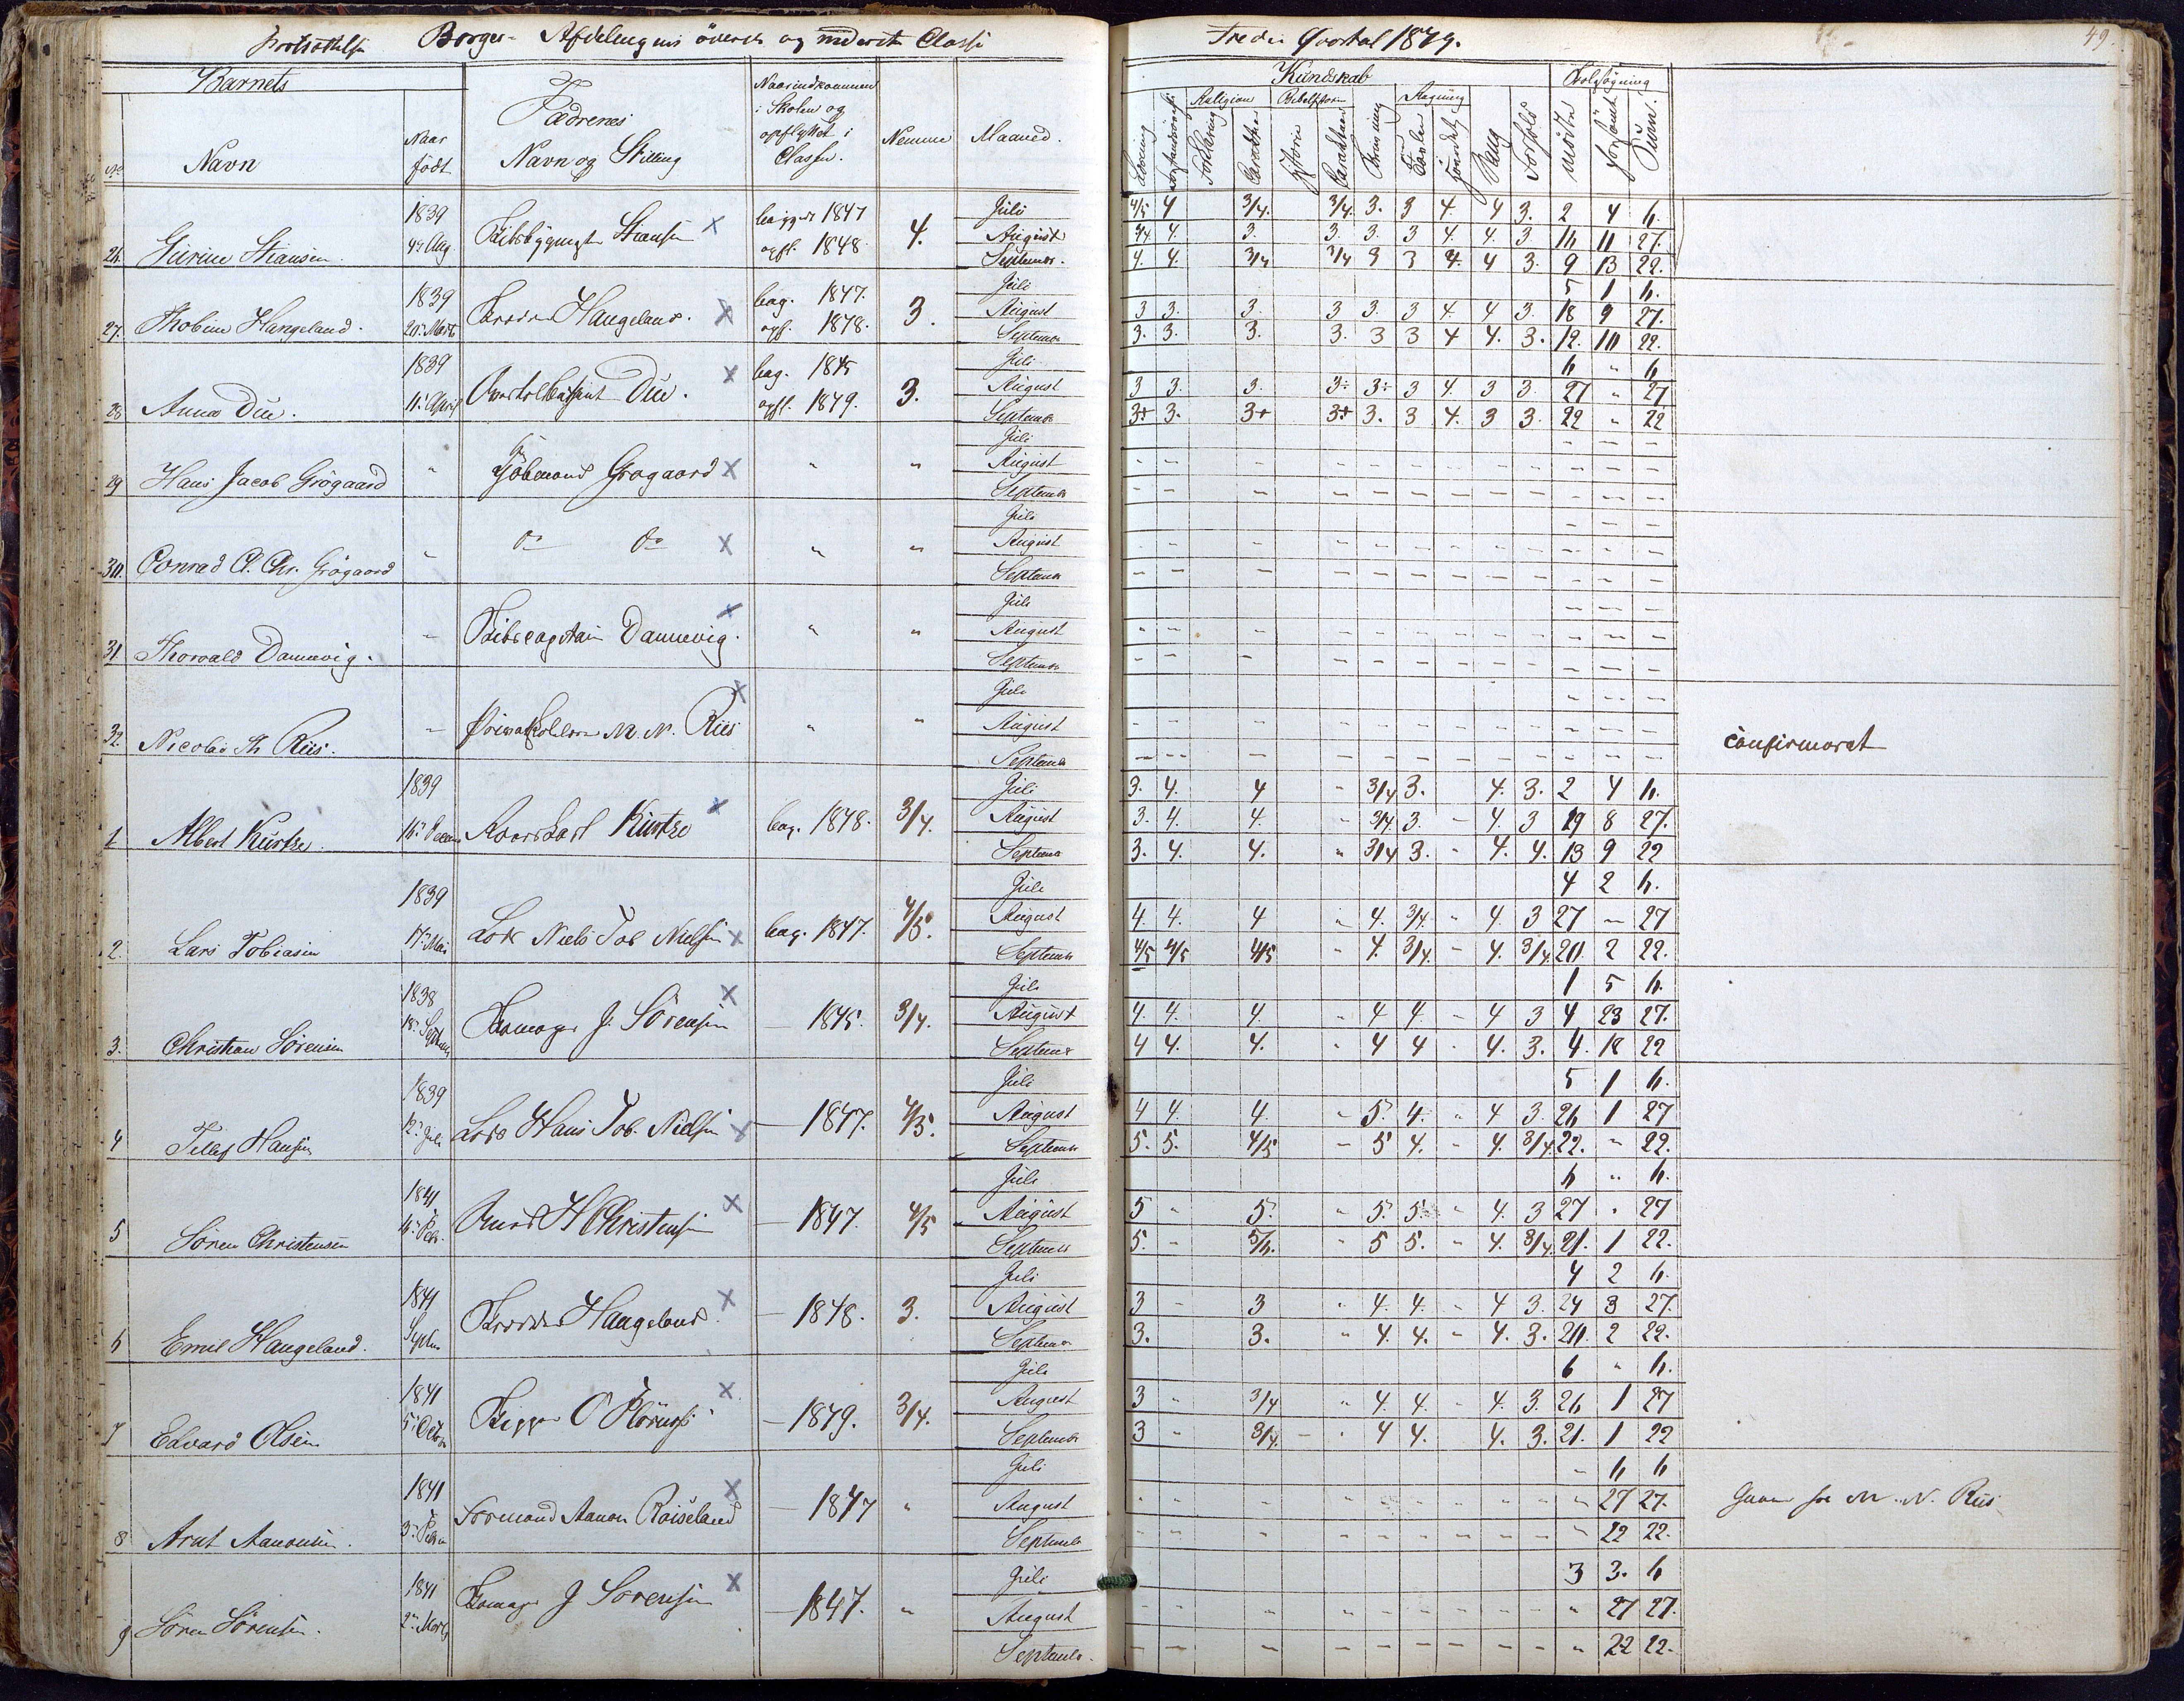 Fortsættelse Borger-Afdelingens överste og nederste Classe
Tredie Qvartal 1849.
49.
Barnets
No
Navn
Naar født
Fædrenes Navn og Stilling
Naar indkommen i Skolen og opflyttet i Classen.
Nemme
Maaned.
Kundskab
Læsning
Religion
Forklaring
Carakteer
Bibelhistorie
Historie
Carakteer
Skrivning
Regning
Tavlen
Hovedet
Sang
Forhold
Skolesøgning
mødte
forsømt
Sum.
26. Gurine Stiansen. 1839 4de Aug. Skibsbygmester Stiansen x bagges 1847 opfl. 1848 4.
Juli 4/5 4 3/4. 3/4. 3. 3 4. 4 3. 2 4 6.
August 3/4 4. 3. 3. 3. 3 4. 4. 3. 16 11 27.
September. 4. 4. 3/4 3/4 3 3 4. 4 3. 9 13 22.
27. Thobine Haugeland. 1839 20de Marts Haugeland. x bag. 1847. opf. 1848. 3.
Juli 5 1 6.
August 3 3. 3. 3 3. 3 4. 4 3. 18 9 27.
September 3. 3. 3. 3. 3 3 4 4. 3. 12. 10 22.
28. Anna Due. 1839 11te April Due. x bag. 1845 opfl. 1849. 3.
Juli 6 " 6
August 3 3. 3. 3. 3. 3 4. 3 3. 27 " 27
September 3+ 3. 3+ 3+ 3. 3 4. 3 3. 22 " 22
29 Hans Jacob Grögaard " Kjöbmand Grøgaard x " "
Juli
August
September
30. Conrad C. Chr. Grögaard " do do x " "
Juli
August
September
31. Thorvald Dannevig. " Skibscaptain Dannevig. x " "
Juli
August
September
32. Nicolai Th. Riis. " M. N. Riis x " "
Juli
August
September
confirmeret
1. Albert Kurtze. 1839 Kurtze x bag. 1848. 3/4.
Juli 3. 4. 4 " 3/4 3. 4. 3. 2 4 6.
August 3. 4. 4. " 3/4 3. - 4. 3 19 8 27.
September 3. 4. 4. " 3/4 3. " 4. 4. 13 9 22
2. Lars Tobiasen 1839 17de Mai Lods Niels Tob. Nielsen x bag. 1847. 4/5.
Juli 4 2 6.
August 4. 4. 4 " 4. 3/4. " 4. 3 27 - 27
September 4/5 4/5 4/5 " 4. 3/4. - 4. 3/4. 20. 2 22.
3. Christian Sörensen 1838 18de Septembr J. Sörensen x - 1845. 3/4.
Juli 1 5 6.
August 4. 4. 4. " 4 4. - 4 3 4 23 27.
September 4 4. 4. " 4 4 - 4. 3. 4. 18 22
4 Tellef Hansen 1839 12te Juli Lods Hans Tob. Nielsen x - 1847. 4/5.
Juli 5 1 6.
August 4 4. 4 - 5. 4. " 4 3. 26 1 27
September 5. 5. 4/5 - 5 4. - 4. 3/4. 22. " 22.
5 Sören Christensen 1841 H Christensen x - 1847. 4/5
Juli 6 " 6.
August 5 " 5 " 5. 5. " 4. 3 27 " 27
September 5. - 5/6. " 5 5. " 4. 3/4. 21. 1 22.
6 Emil Haugeland. 1841 Septbr Haugeland. x - 1848. 3.
Juli 4 2 6.
August 3 - 3 " 4. 4. - 4 3. 24 3 27.
September 3. 3. " 4. 4. - 4. 3. 20. 2 22.
7 Edvard Olsen 1841 5te Octbr Skipper O x - 1849. 3/4.
Juli 6 " 6.
August 3 " 3/4 " 4. 4. - 4. 3. 26 1 27
September 3 " 3/4. - " 4 4. 4. 3. 21. 1 22
8 Arnt Aanonsen. 1841 Formand Aanon Roiseland x - 1847 "
Juli - 6 6
August " 27 27.
September " 22 22.
M. N. Riis
9 Sören Sörensen. 1841 2den Marts J Sörensen x - 1847. "
Juli 3 3. 6
August " 27 27.
September. " 22 22.